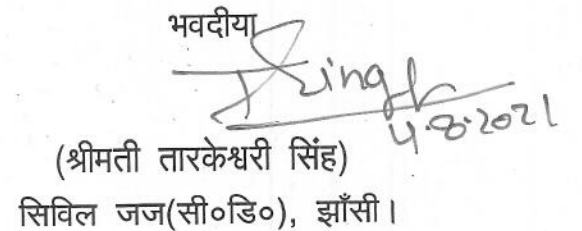 भवदीया
T Singh
4.8.2021
(श्रीमती तारकेश्वरी सिंह)
सिविल जज(सी०डि०), झाँसी।